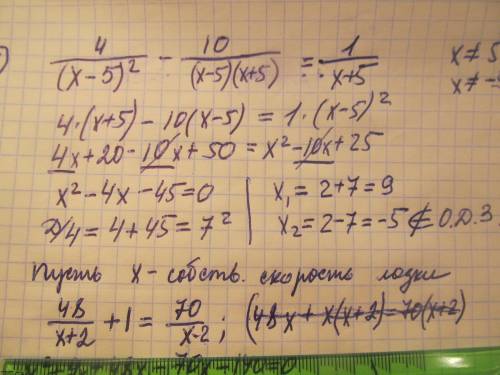 4/(x-5)² - 10/((x-5)(x+5)) = 1/(x+5)   x≠5
x≠-5
4·(x+5) - 10(x-5) = 1·(x-5)²
4x+20-10x+50 = x²-10x+25
x²-4x-45=0 | x₁ = 2+7=9
D/4 = 4+45=7² | x₂ = 2-7=-5 ∉ О.Д.З.
Пусть x - собств. скорость лодки
48/(x+2) + 1 = 70/(x-2); (48x + x(x+2) = 70(x+2))